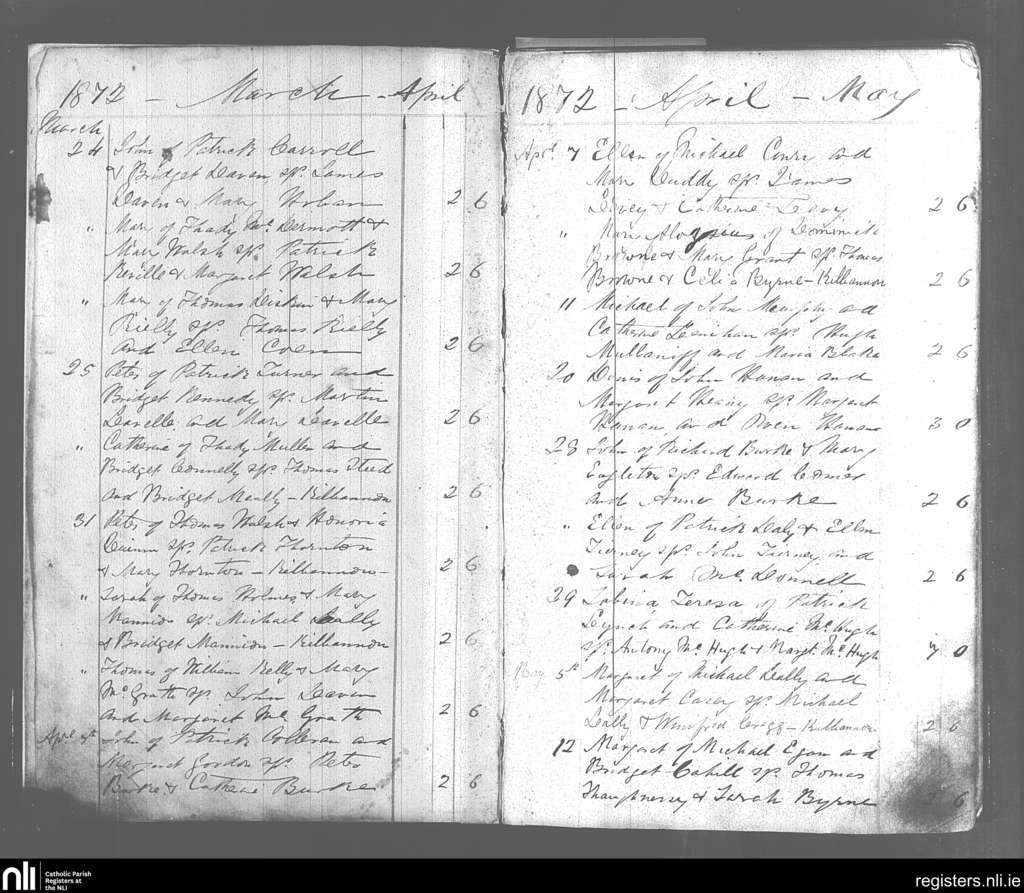 1872 - March - April
March
24 John of Patrick Carroll
& Bridget Daven sps. James
Daven & Mary Hoban 2 6
" Mary of Thady McDermott &
Mary Walsh sps. Patrick
Neville & Margaret Walsh 2 6
" Mary of Thomas Diskin & Mary
Rielly sps. Thomas Rielly
and Ellen Coen 2 6
25 Peter of Patrick Turner and
Bridget Kennedy sps. Martin
Lavelle and Mary Lavelle 2 6
" Catherine of Thady Mullen and
Bridget Connelly sps. Thomas Steed
and Bridget Meally - Kilkannon 2 6
31 Peter of Thomas Walsh & Honoria
Quinn sps. Patrick Thornton
& Mary Thornton - Kilkannon - 2 6
" Sarah of Thomas Holmes & Mary
Mannion sps. Michael Lally
& Bridget Mannion - Kilkannon 2 6
" Thomas of William Kelly & Mary
McGrath sps. John Daven
and Margaret McGrath 2 6
April John of Patrick Colleran and
Margaret Gordon sps. Peter
Burke & Catherine Burke 2 6
1872 - April - May
Apr. 7 Ellen of Michael Conry and
Mary Cuddy sps. James
Levey & Catherine Leavy 2 6
" Mary Aloysius of Dominick
Browne & Mary Grant sps. Thomas
Browne & Celia Byrne - Kilkannon 2 6
11 Michael of John and
Catherine Lenihan sps. Hugh
Mullany and Maria Blake 2 6
20 Denis of John Hanan and
Margaret Heany sps. Margaret
Hanan and Owen Hanan 3 0
28 John of Richard Burke & Mary
Eagleton sps. Edward Comer
and Anne Burke 2 6
" Ellen of Patrick Daly & Ellen
Tierney sps. John Tierney and
Sarah McDonnell 2 6
29 Sabina Teresa of Patrick
Lynch and Catherine McHugh
sps. Antony McHugh & Margt. McHugh 7 0
May 5th Margaret of Michael Lally and
Margaret Casey sps. Michael
Lally & Winifred Cragg - Kilkannon 2 6
12 Margaret of Michael Egan and
Bridget Cahill sps. Thomas
Shaughnessy & Sarah Byrne 2 6
nli
Catholic Parish
Registers at
the NLI
registers.nli.ie